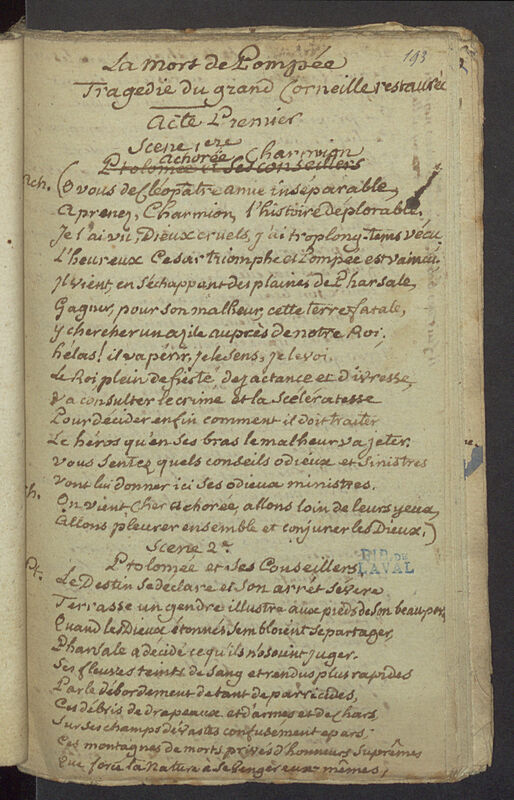 193
La mort de Pompée
Tragedie du grand Corneille restaurée
Acte Premier
Scene 1ere
achorée Charmion
Ptolomée et ses conseillers
Ach. (O vous de Cléopatre amie inséparable,
Aprenez, Charmion, l'histoire déplorable,
Je l'ai vu, Dieux cruels, j'ai trop long-tems vécu,
L'heureux Cesar triomphe et Pompée est vaincu.
Il vient, en s'échappant des plaines de Pharsale,
Gagner, pour son malheur, cette terre fatale,
y chercher un azile auprès de notre Roi.
hélas! il va périr, je le sens, je le voi.
Le Roi plein de fierté de jactance et d'ivresse,
va consulter le crime et la scéleratesse
Pour décider enfin comment il doit traiter
Le héros qu'en ses bras le malheur va jeter.
vous sentez quels conseils odieux et sinistres
vont lui donner ici ses odieux ministres.
Ch. On vient cher achorée, allons loin de leurs yeux,
Allons pleurer ensemble et conjurer les Dieux.)
Scene 2e
Ptolomée et ses Conseillers
BIB. DE LAVAL
Pt. Le Destin se déclare et son arrét sévere
Terrasse un gendre illustre aux pieds de son beau-pere,
Quand les Dieux étonnés sembloient se partager,
Pharsale a décidé ce qu'ils n'osoient juger.
Ses fleuves teints de sang et rendus plus rapides
Par le débordement de tant de parricides,
Ces débris de drapeaux et d'armes et de chars,
Sur ses champs dévastés confusement epars;
Ces montagnes de morts privés d'honneurs suprêmes
Que force la Nature à se venger eux-mêmes,